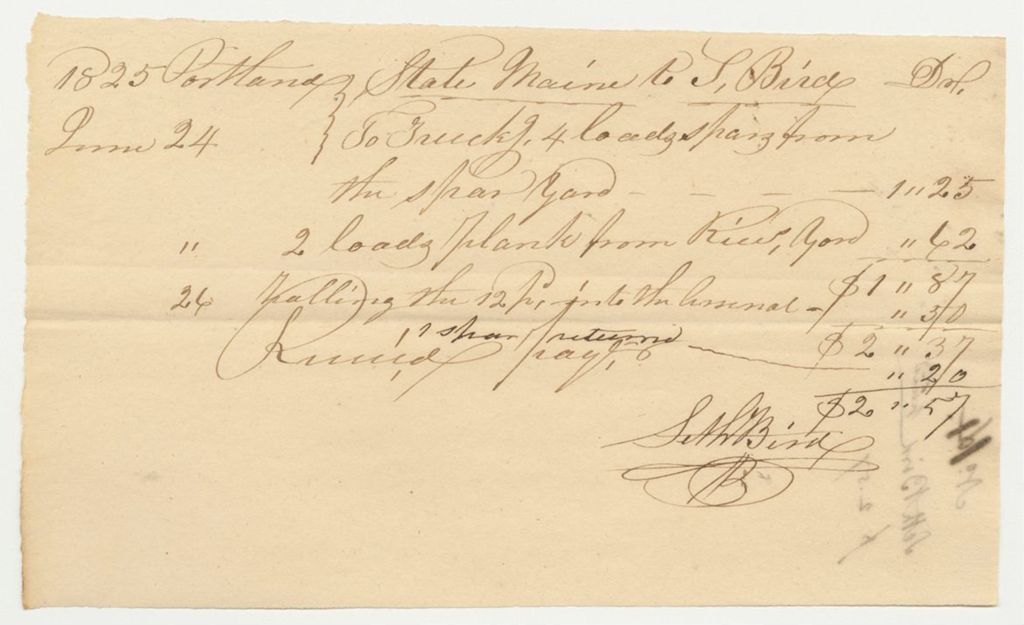 1825 Portland, State Maine to S, Bird Dr.
June 24 } To Truckg, 4 loads spars from
the spar Yard - - - - 1 " 25
" 2 loads plank from Rices, Yard " 62
$1 " 87
26 Halling the 12 P, into the Arsenal - " 50
$2 " 37
1 spar returnd " 20
Receiv,d pay,t
$2 " 57
Seth Bird
SB
No. 14
Seth Bird
$ 2.57